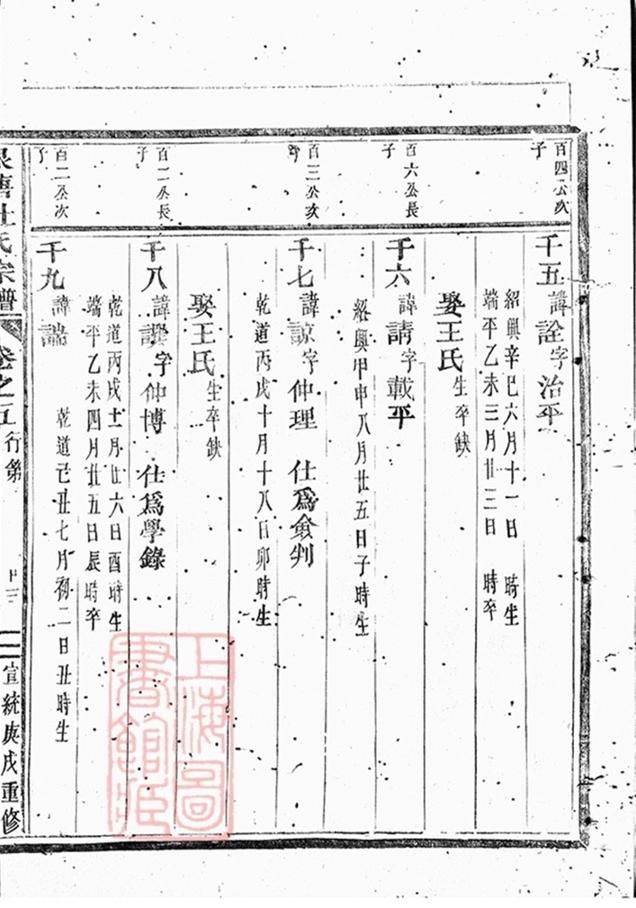 百四公次子
千五 諱詮字治平
紹興辛巳六月十一日 時生
端平乙未三月廿三日 時卒
娶王氏 生卒缺
百六公長子
千六 諱請字載平
紹興甲申八月廿五日子時生
百三公次子
千七 諱諒字仲理 仕爲僉判
乾道丙戌十月十八日卯時生
娶王氏 生卒缺
百二公長子
千八 諱字仲博 仕爲學錄
乾道丙戌十二月廿六日酉時生
端平乙未四月廿五日辰時卒
百二公次子
千九 諱
乾道己丑七月初二日丑時生
杜氏宗譜 卷之五 行第 廿三 宣統庚戌重修
上海圖書館藏